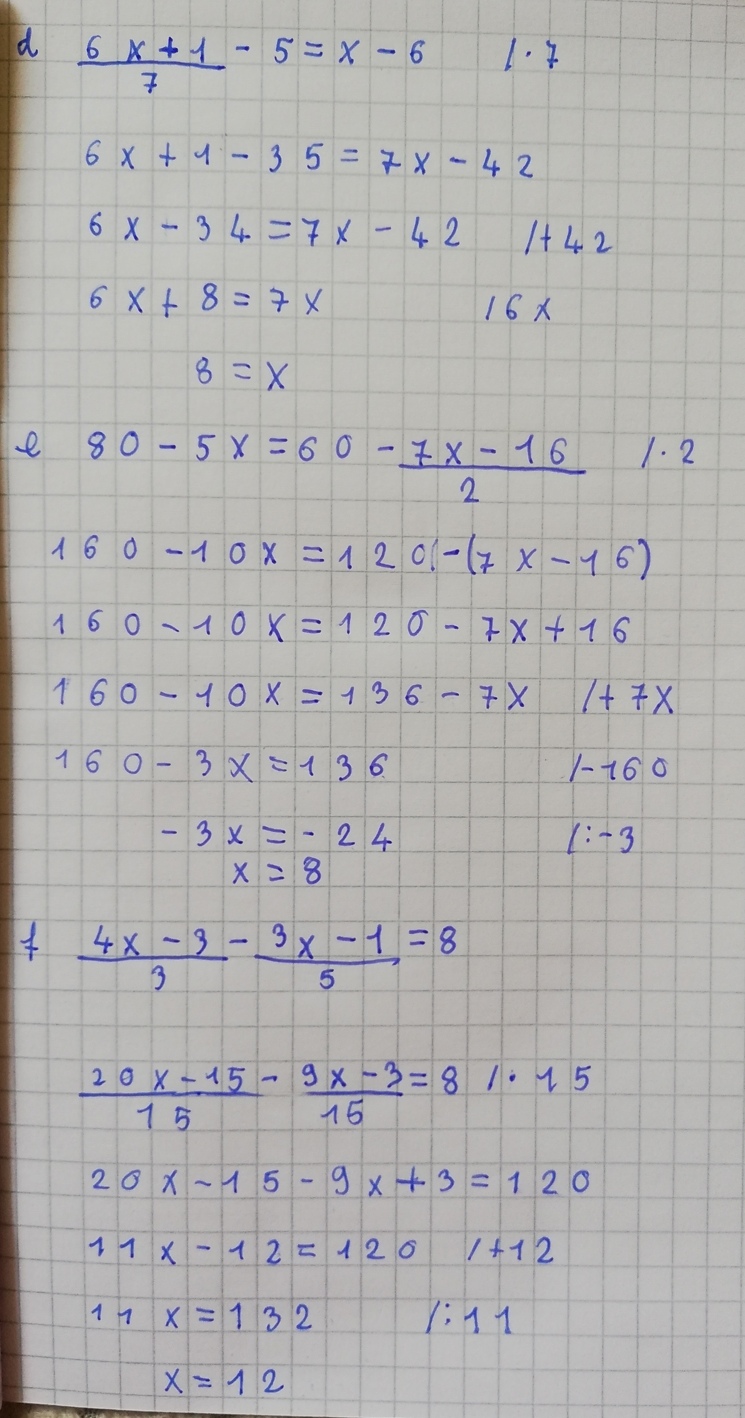 d 6x+1/7 - 5 = x - 6 /·7
6x + 1 - 35 = 7x - 42
6x - 34 = 7x - 42 /+42
6x + 8 = 7x /6x
8 = x
e 80 - 5x = 60 - 7x-16/2 /·2
160 - 10x = 120 -(7x - 16)
160 - 10x = 120 - 7x + 16
160 - 10x = 136 - 7x /+7x
160 - 3x = 136 /-160
-3x = -24 /:-3
x = 8
f 4x-3/3 - 3x-1/5 = 8
20x-15/15 - 9x-3/15 = 8 /·15
20x - 15 - 9x + 3 = 120
11x - 12 = 120 /+12
11x = 132 /:11
x = 12